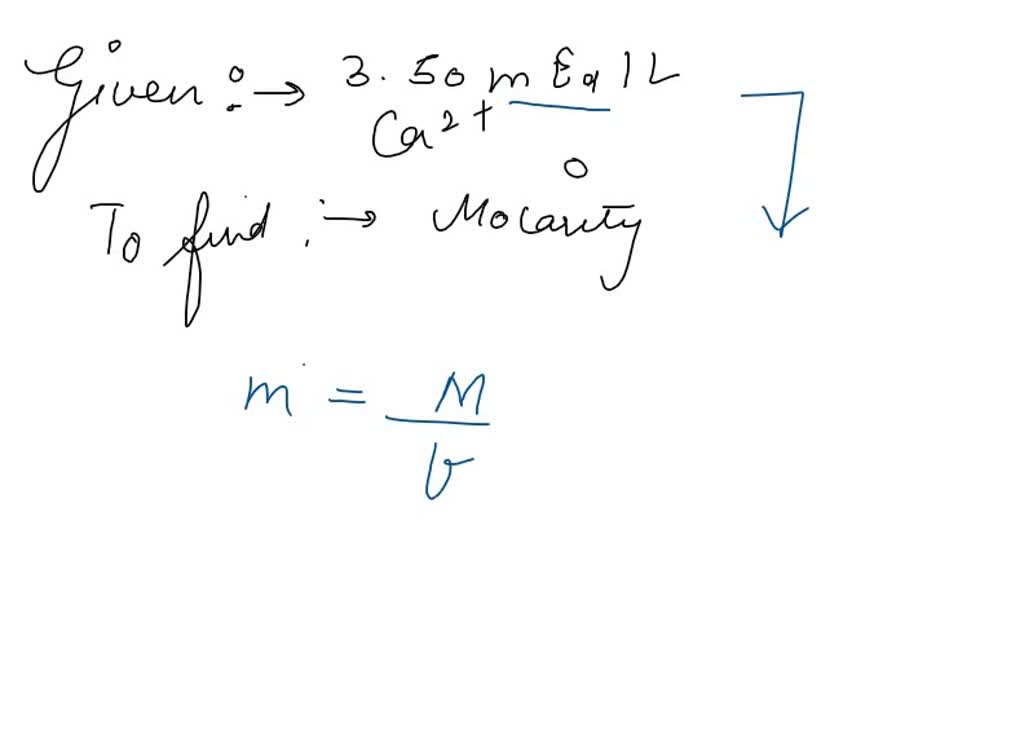 Given :→ 3.50 m Eq/L
Ca2+
To find :→ Molarity
m = M
v